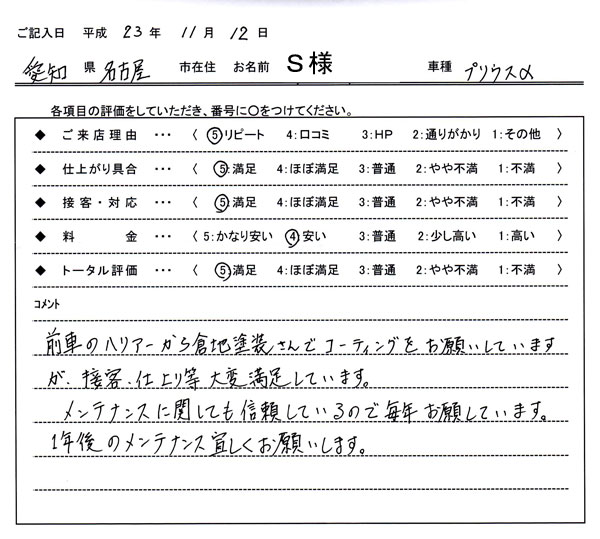 ご記入日 平成 23 年 11 月 12 日
愛知 県 名古屋 市在住 お名前 S様 車種 プリウスα
各項目の評価をしていただき、番号に○をつけてください。
◆ ご来店理由 ・・・ 〈 5リピート 4:口コミ 3:HP 2:通りがかり 1:その他 〉
◆ 仕上がり具合 ・・・ 〈 5:満足 4:ほぼ満足 3:普通 2:やや不満 1:不満 〉
◆ 接客・対応 ・・・ 〈 5:満足 4:ほぼ満足 3:普通 2:やや不満 1:不満 〉
◆ 料金 ・・・ 〈 5:かなり安い 4安い 3:普通 2:少し高い 1:高い 〉
◆ トータル評価 ・・・ 〈 5:満足 4:ほぼ満足 3:普通 2:やや不満 1:不満 〉
コメント
前車のハリアーから倉地塗装さんでコーティングをお願いしています
が、接客、仕上り等大変満足しています。
メンテナンスに関しても信頼しているので毎年お願しています。
1年後のメンテナンス宜しくお願いします。